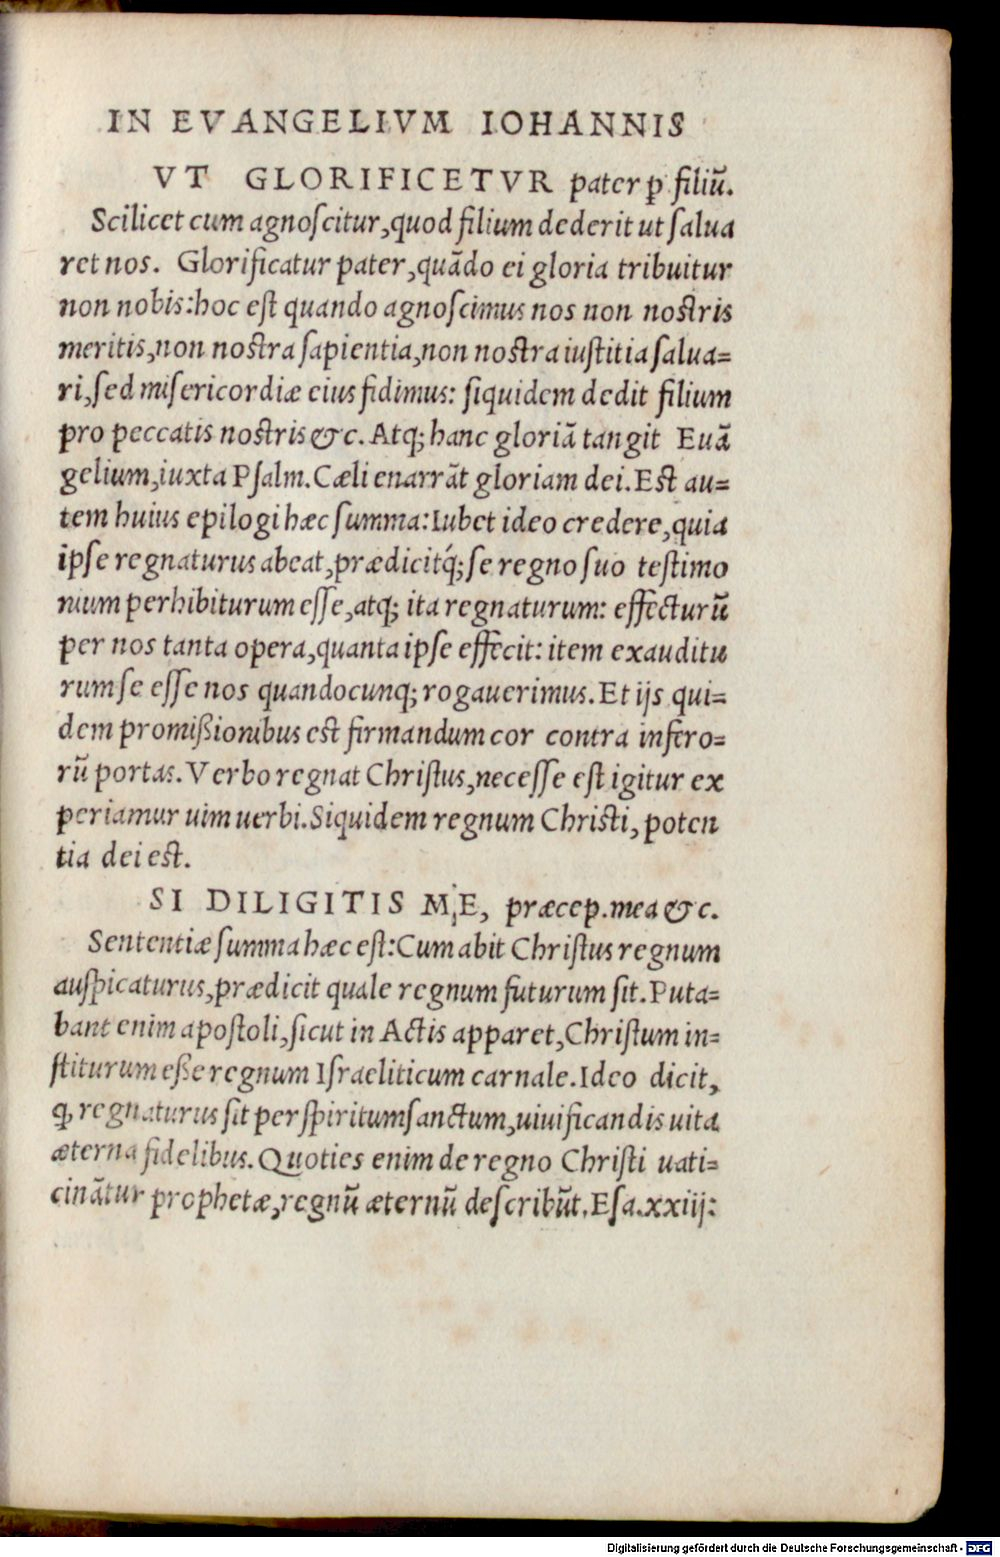 IN EVANGELIVM IOHANNIS
VT GLORIFICETVR pater ꝑ filiũ.
Scilicet cum agnoſcitur,quod filium dederit ut ſalua
ret nos. Glorificatur pater,quãdo ei gloria tribuitur
non nobis:hoc eſt quando agnoſcimus nos non noſtris
meritis,non noſtra ſapientia,non noſtra iuſtitia ſalua=
ri,ſed miſericordiæ eius fidimus: ſiquidem dedit filium
pro peccatis noſtris &c. Atq; hanc gloriã tangit Euã
gelium,iuxta Pſalm. Cæli enarrãt gloriam dei. Eſt au=
tem huius epilogi hæc ſumma: Iubet ideo credere,quia
ipſe regnaturus abeat,prædicitq́; ſe regno ſuo teſtimo
nium perhibiturum eſſe,atq; ita regnaturum: effecturũ
per nos tanta opera,quanta ipſe effecit: item exauditu
rum ſe eſſe nos quandocunq; rogauerimus. Et ijs qui=
dem promißionibus eſt firmandum cor contra infero=
rũ portas. Verbo regnat Chriſtus,neceſſe eſt igitur ex
periamur uim uerbi. Siquidem regnum Chriſti, poten
tia dei eſt.
SI DILIGITIS ME, præcep. mea &c.
Sententiæ ſumma hæc eſt: Cum abit Chriſtus regnum
auſpicaturus,prædicit quale regnum futurum ſit. Puta=
bant enim apoſtoli,ſicut in Actis apparet,Chriſtum in=
ſtiturum eße regnum Iſraeliticum carnale. Ideo dicit,
ꝙ regnaturus ſit per ſpiritumſanctum,uiuificandis uita
æterna fidelibus. Quoties enim de regno Chriſti uati=
cinãtur prophetæ,regnũ æternũ deſcribũt. Eſa. xxiij:
Digitalisierung gefördert durch die Deutsche Forschungsgemeinschaft - DFG